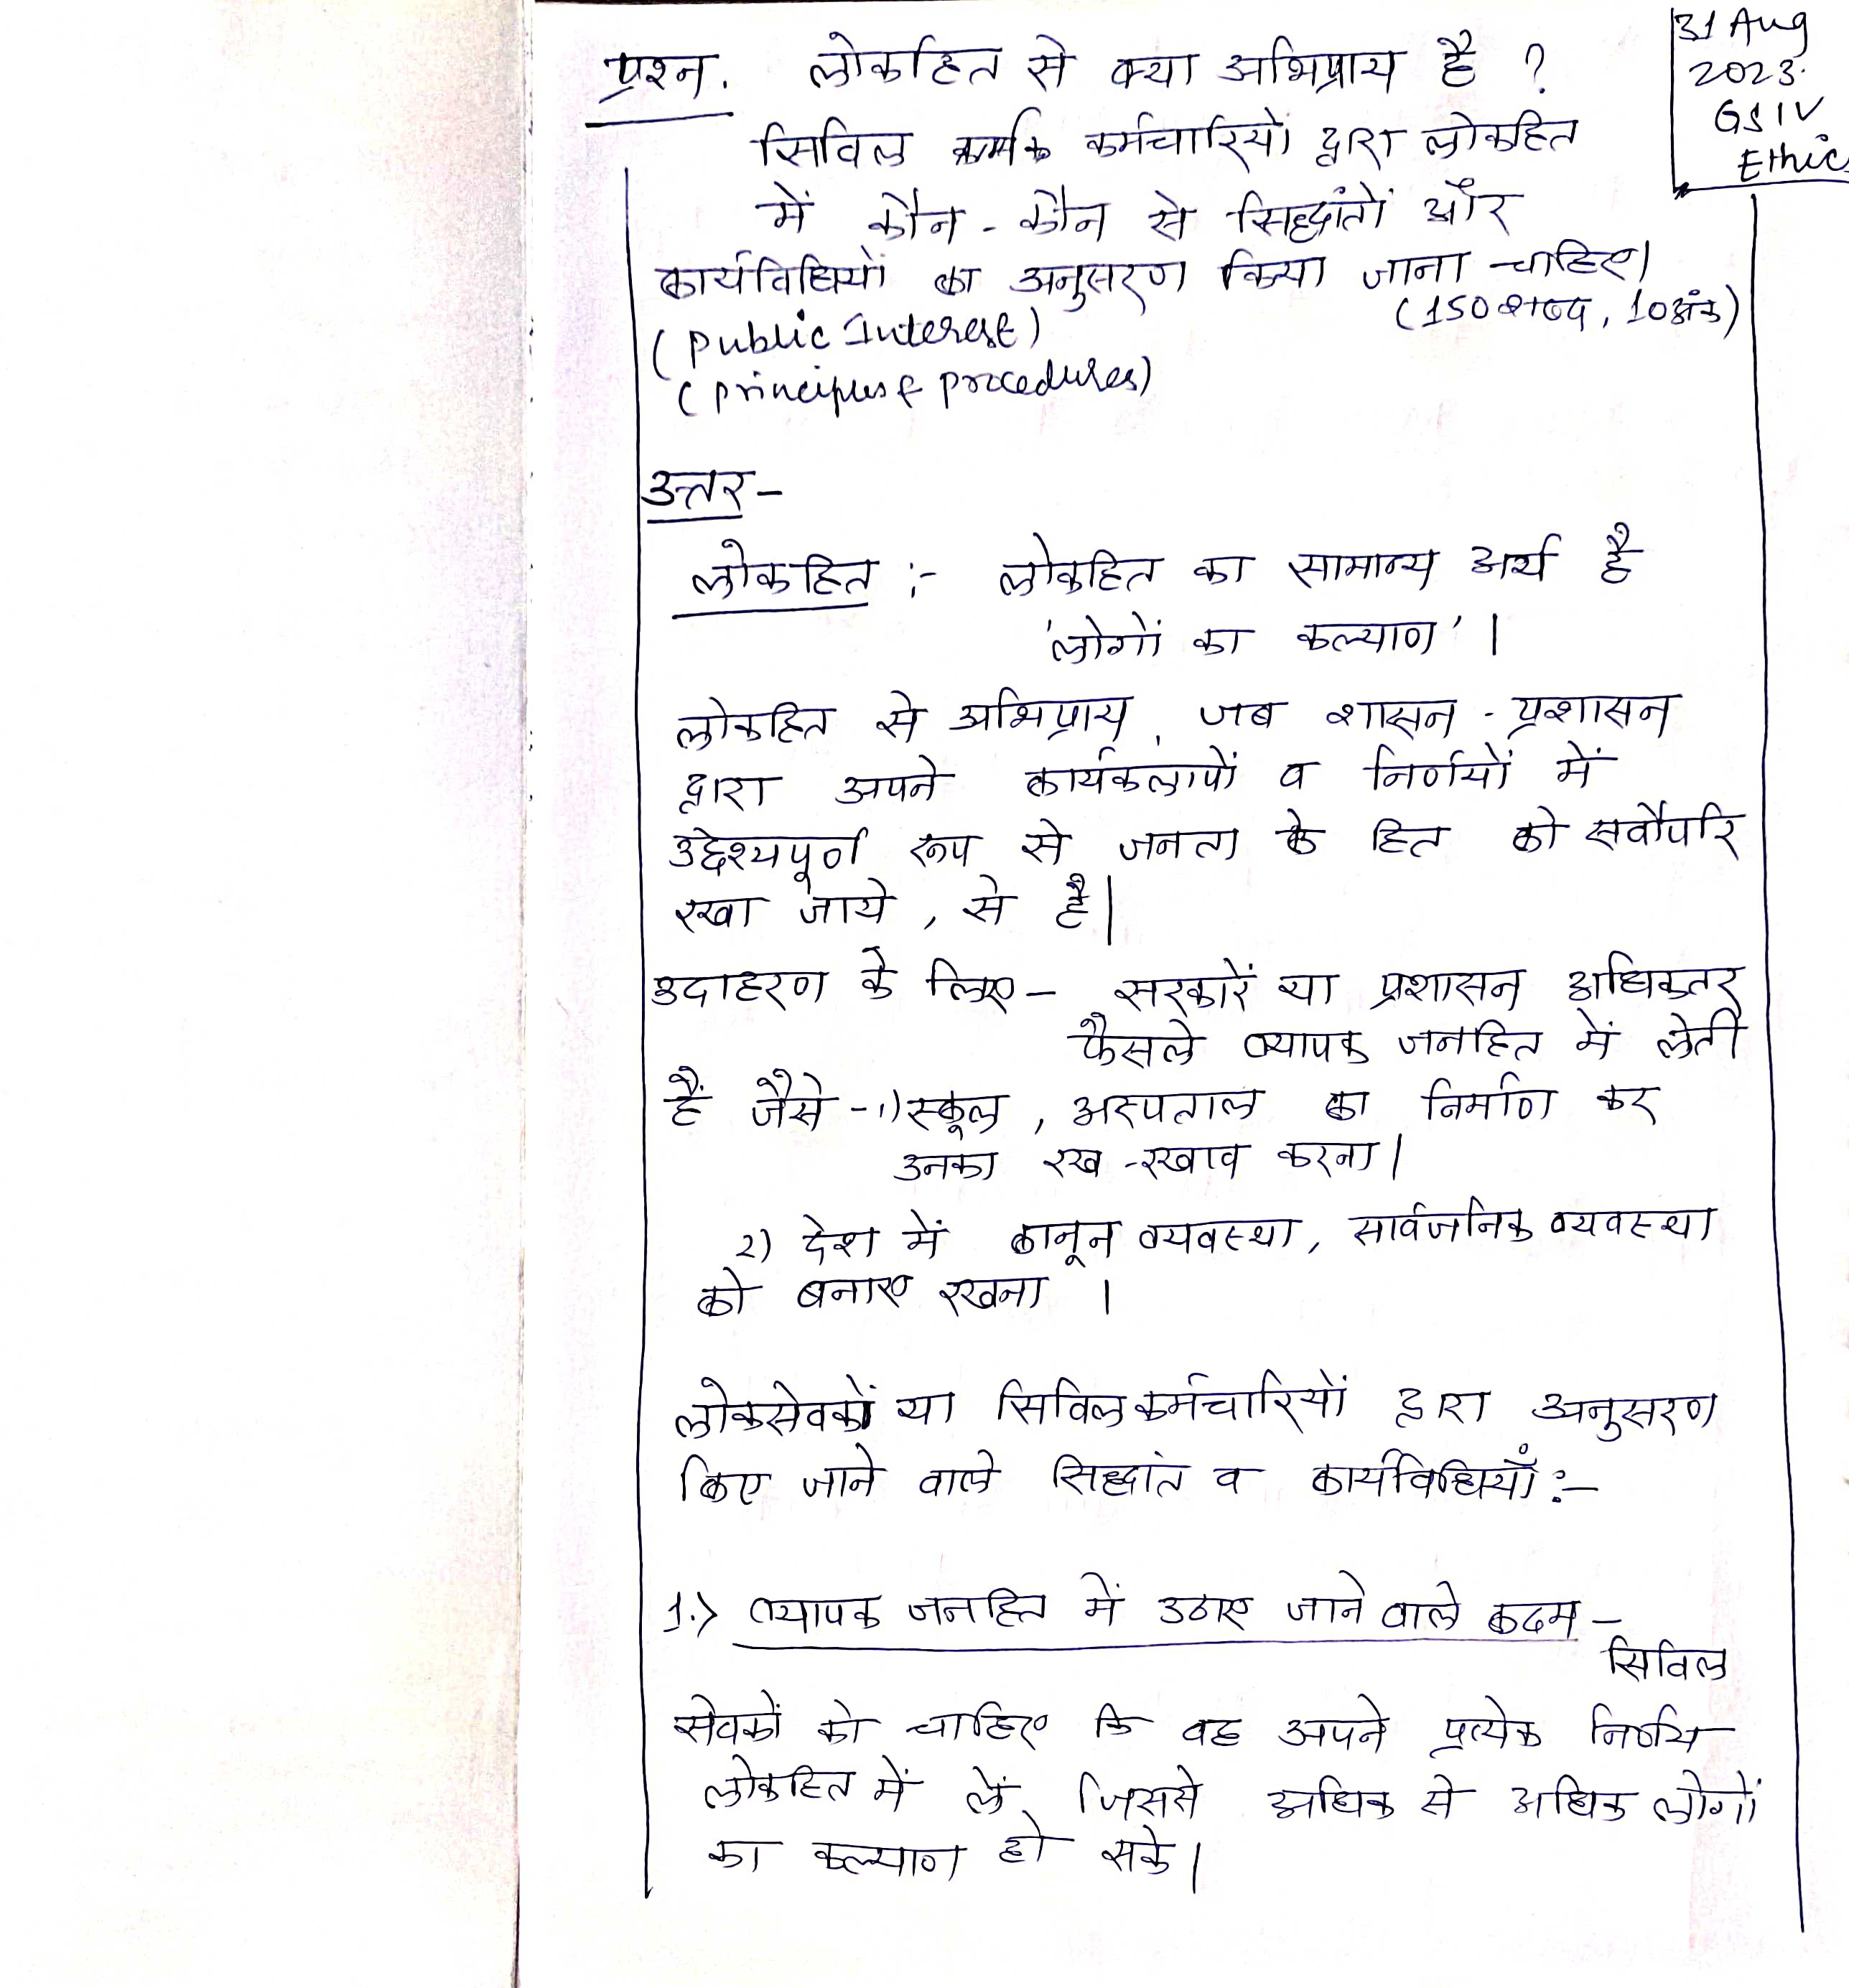 31 Aug
2023.
GS IV
Ethic
प्रश्न. लोकहित से क्या अभिप्राय है ?
सिविल कर्मचारियों द्वारा लोकहित
में कौन - कौन से सिद्धांतों और
कार्यविधियों का अनुसरण किया जाना चाहिए।
(150 शब्द, 10 अंक)
(Public Interest)
(Principles & procedures)
उत्तर -
लोकहित :- लोकहित का सामान्य अर्थ है
'लोगों का कल्याण' ।
लोकहित से अभिप्राय, जब शासन - प्रशासन
द्वारा अपने कार्यकलापों व निर्णयों में
उद्देश्यपूर्ण रूप से जनता के हित को सर्वोपरि
रखा जाये , से है।
उदाहरण के लिए - सरकारें या प्रशासन अधिकतर
फैसले व्यापक जनहित में लेती
हैं जैसे -1) स्कूल , अस्पताल का निर्माण कर
उनका रख -रखाव करना।
2) देश में कानून व्यवस्था, सार्वजनिक व्यवस्था
को बनाए रखना ।
लोकसेवकों या सिविल कर्मचारियों द्वारा अनुसरण
किए जाने वाले सिद्धांत व कार्यविधियाँ :-
1.> व्यापक जनहित में उठाए जाने वाले कदम -
सिविल
सेवकों को चाहिए कि वह अपने प्रत्येक निर्णय
लोकहित में लें, जिससे अधिक से अधिक लोगों
का कल्याण हो सके।